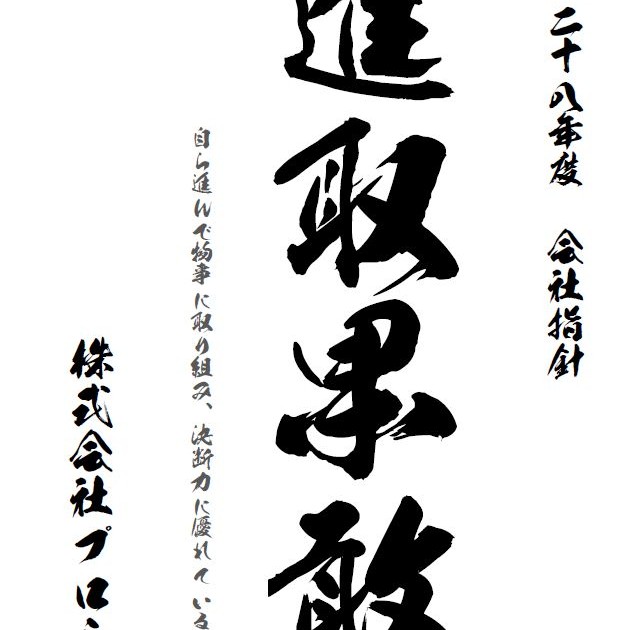 二十八年度　会社指針
進取果敢
自ら進んで物事に取り組み、決断力に優れている
株式会社プロ